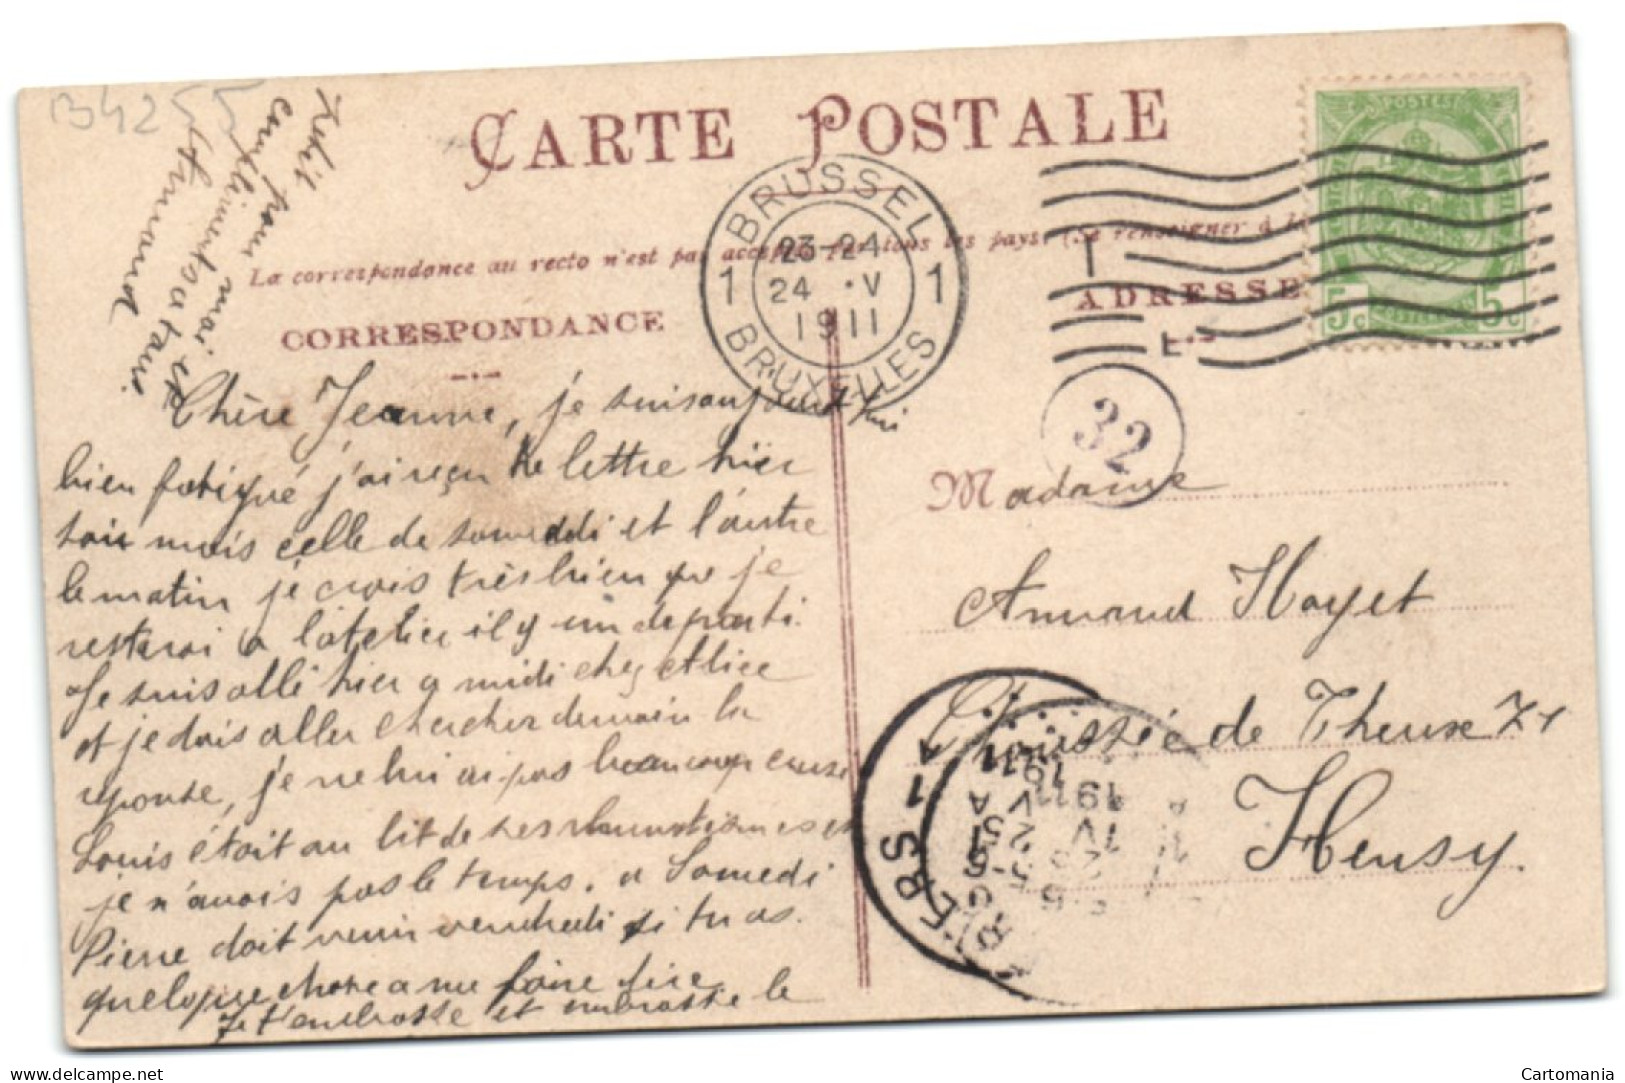 B4255
CARTE POSTALE
La correspondance au recto n'est pas acceptée par tous les pays. (Se renseigner à la
CORRESPONDANCE
ADRESSE
BRUSSEL
23-24
1 24 · V 1
1911
BRUXELLES
T
L
5c 5c
POSTES
32
Chère Jeanne, je suis aujourd'hui
bien fatigué j'ai reçu ta lettre hier
soir mais celle de samedi et l'autre
le matin je crois très bien que je
resterai a l'atelier il y un de parti.
Je suis allé hier a midi chez Alice
et je dois aller chercher demain la
reponse, je ne lui ai pas beaucoup causé
Louis étoit au lit de ses rhumatismes et
je n'avais pas le temps. a Samedi
Pierre doit venir vendredi si tu as
quelque chose a me faire dire
Je t'embrasse et embrasse le
Petit pour moi et
compliments a tous.
Armand
Madame
Armand Hoyet
Chaussée de Theux 71
Heusy.
VERVIERS
1911